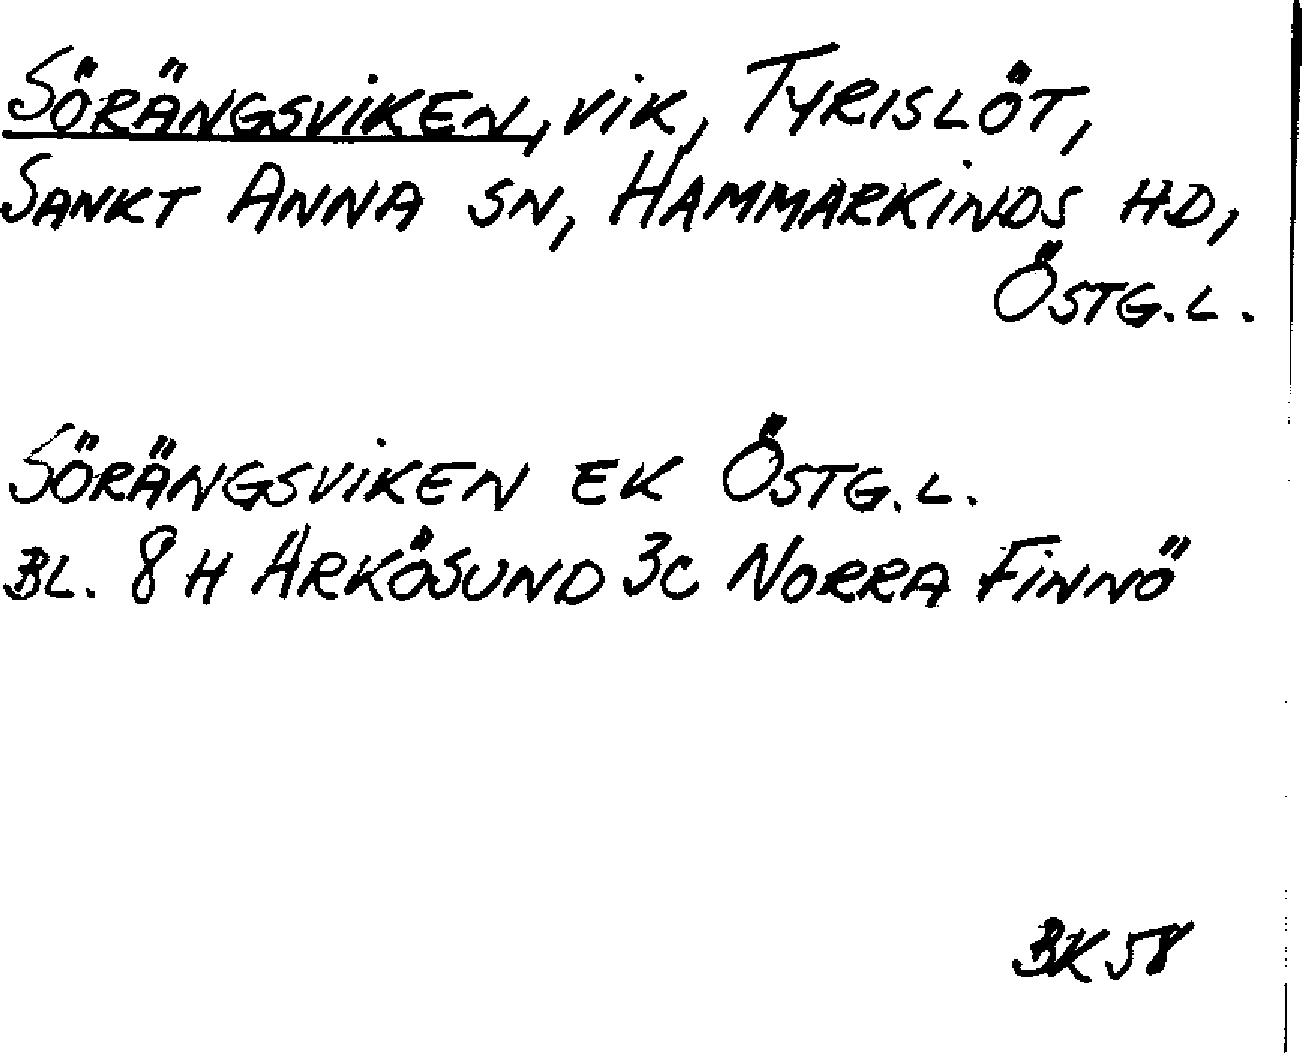 Sörängsviken, vik, Tyrislöt,
Sankt Anna sn, Hammarkinds hd,
Östg.l.
Sörängsviken EK Östg.l.
Bl. 8H Arkösund 3c Norra Finnö
BK 58